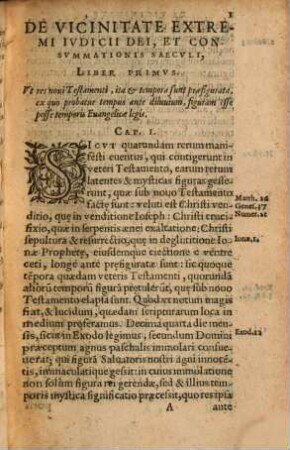 1
DE VICINITATE EXTRE
MI IVDICII DEI, ET CON
SVMMATIONIS SAECVLI,
LIBER PRIMVS.
Vt res noui Testamenti, ita & tempora sunt præfigurata,
ex quo probatur tempus ante diluuium, figuram esse
posse temporis Euangelicæ legis.
CAP. I.
SICVT quarundam rerum mani
festi euentus, qui contigerunt in
veteri Testamento, earum rerum
latentes & mysticas figuras gesse
runt, quæ sub nouo Testamento
factę sunt: veluti est Christi ven
ditio, quę in venditione Ioseph: Christi crucifi
fixio, quæ in serpentis ænei exaltatione: Christi
sepultura & resurrectio, quę in deglutitione Io
næ Prophetę, eiusdemque eiectione è ventre
ceti, longè antè præfigurata sunt: sic quoque
tẽpora quædam veteris Testamenti, quorundã
aliorũ temporũ figurã pręitulerũt, quę sub nouo
Testamento elapsa sunt. Quod vt notum magis
fiat, & lucidum, quædam scripturarum loca in
medium proferamus. Decima quarta die men
sis, sicut in Exodo legimus, secundum Domini
præceptum agnus paschalis immolari consue
uerat: qui figurã Saluatoris nostri agni innocẽ
tis, immaculatique gessit: in cuius immolatione
non solùm figura rei gerendæ, sed & illius tem
poris mystica significatio præcessit, quo res ipsa
Matth. 26
Genes. 37
Numer. 21
Ionæ. 2.
Exod. 12
A ante